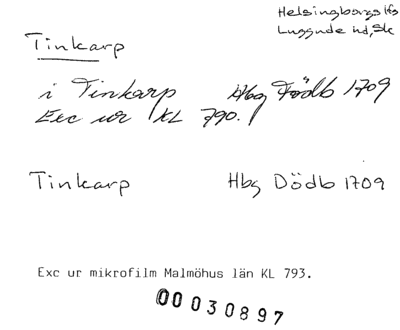 Helsingborgs lfs
Luggude hd, Sk
Tinkarp
i Tinkarp Hbg Födb 1709
Exc ur KL 790.
Tinkarp Hbg Dödb 1709
Exc ur mikrofilm Malmöhus län KL 793.
00030897